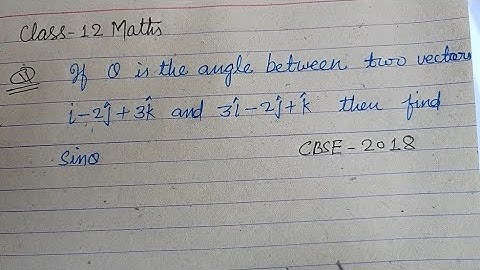 Class-12 Maths
Q If θ is the angle between two vectors
i-2ĵ+3k̂ and 3î-2ĵ+k̂ then find
sinθ CBSE-2018